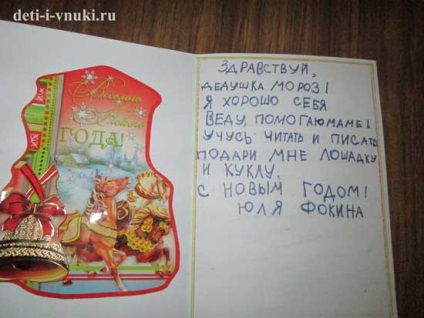 deti-i-vnuki.ru
Веселого
Нового
ГОДА!
ЗДРАВСТВУЙ,
ДЕДУШКА МОРОЗ!
Я ХОРОШО СЕБЯ
ВЕДУ, ПОМОГАЮ МАМЕ!
УЧУСЬ ЧИТАТЬ И ПИСАТЬ
ПОДАРИ МНЕ ЛОШАДКУ
И КУКЛУ.
С НОВЫМ ГОДОМ!
ЮЛЯ ФОКИНА